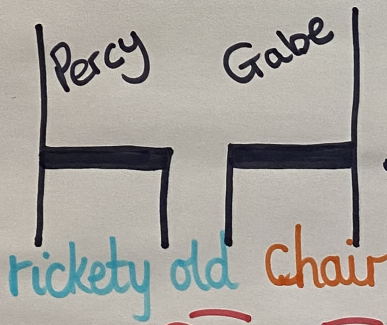 Percy Gabe
rickety old chair